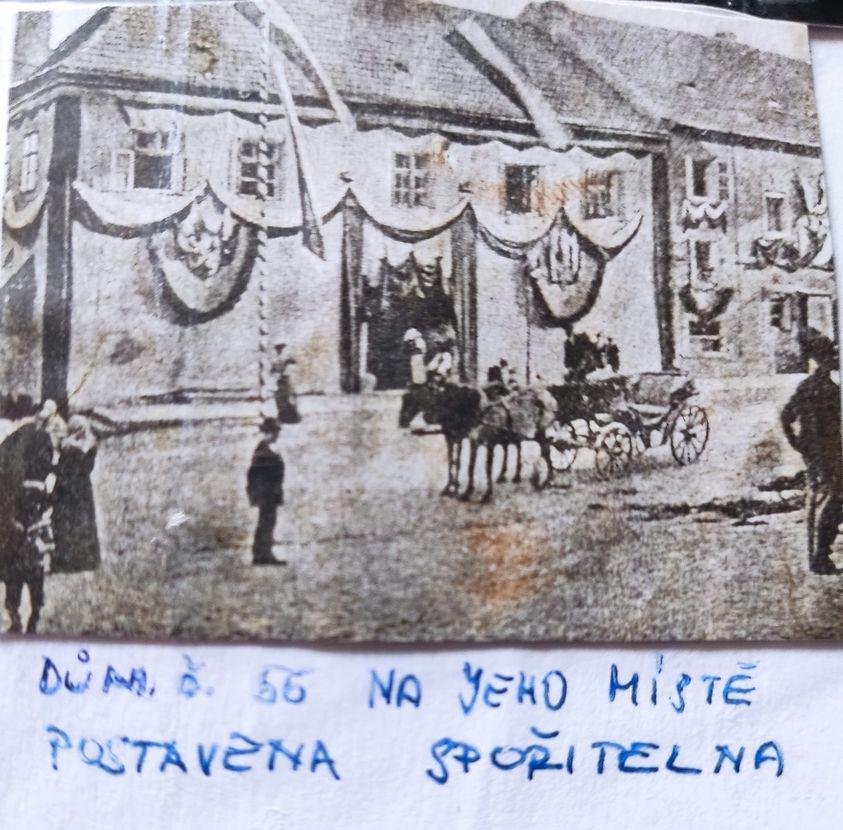 DŮM. Č. 56 NA JEHO MÍSTĚ
POSTAVENA SPOŘITELNA